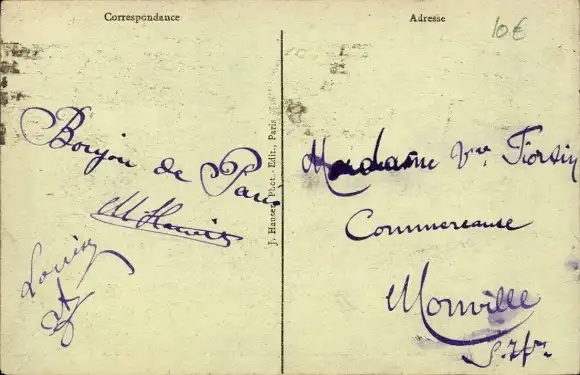 Correspondance
Adresse
10€
Boujou de Paris
Louise
J. Hauser, Phot.-Edit., Paris
Madame Vve Fiorsin
Commercante
Monville
S. Infre